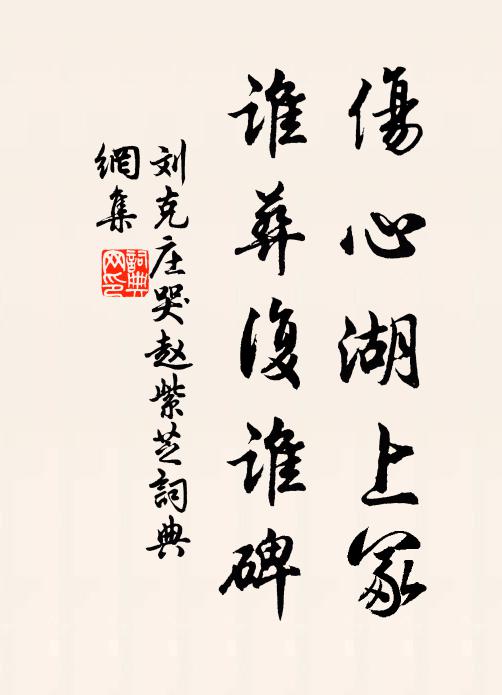 傷心湖上冢
誰葬復誰碑
刘克庄哭赵紫芝詞典
網集
詞典
网印